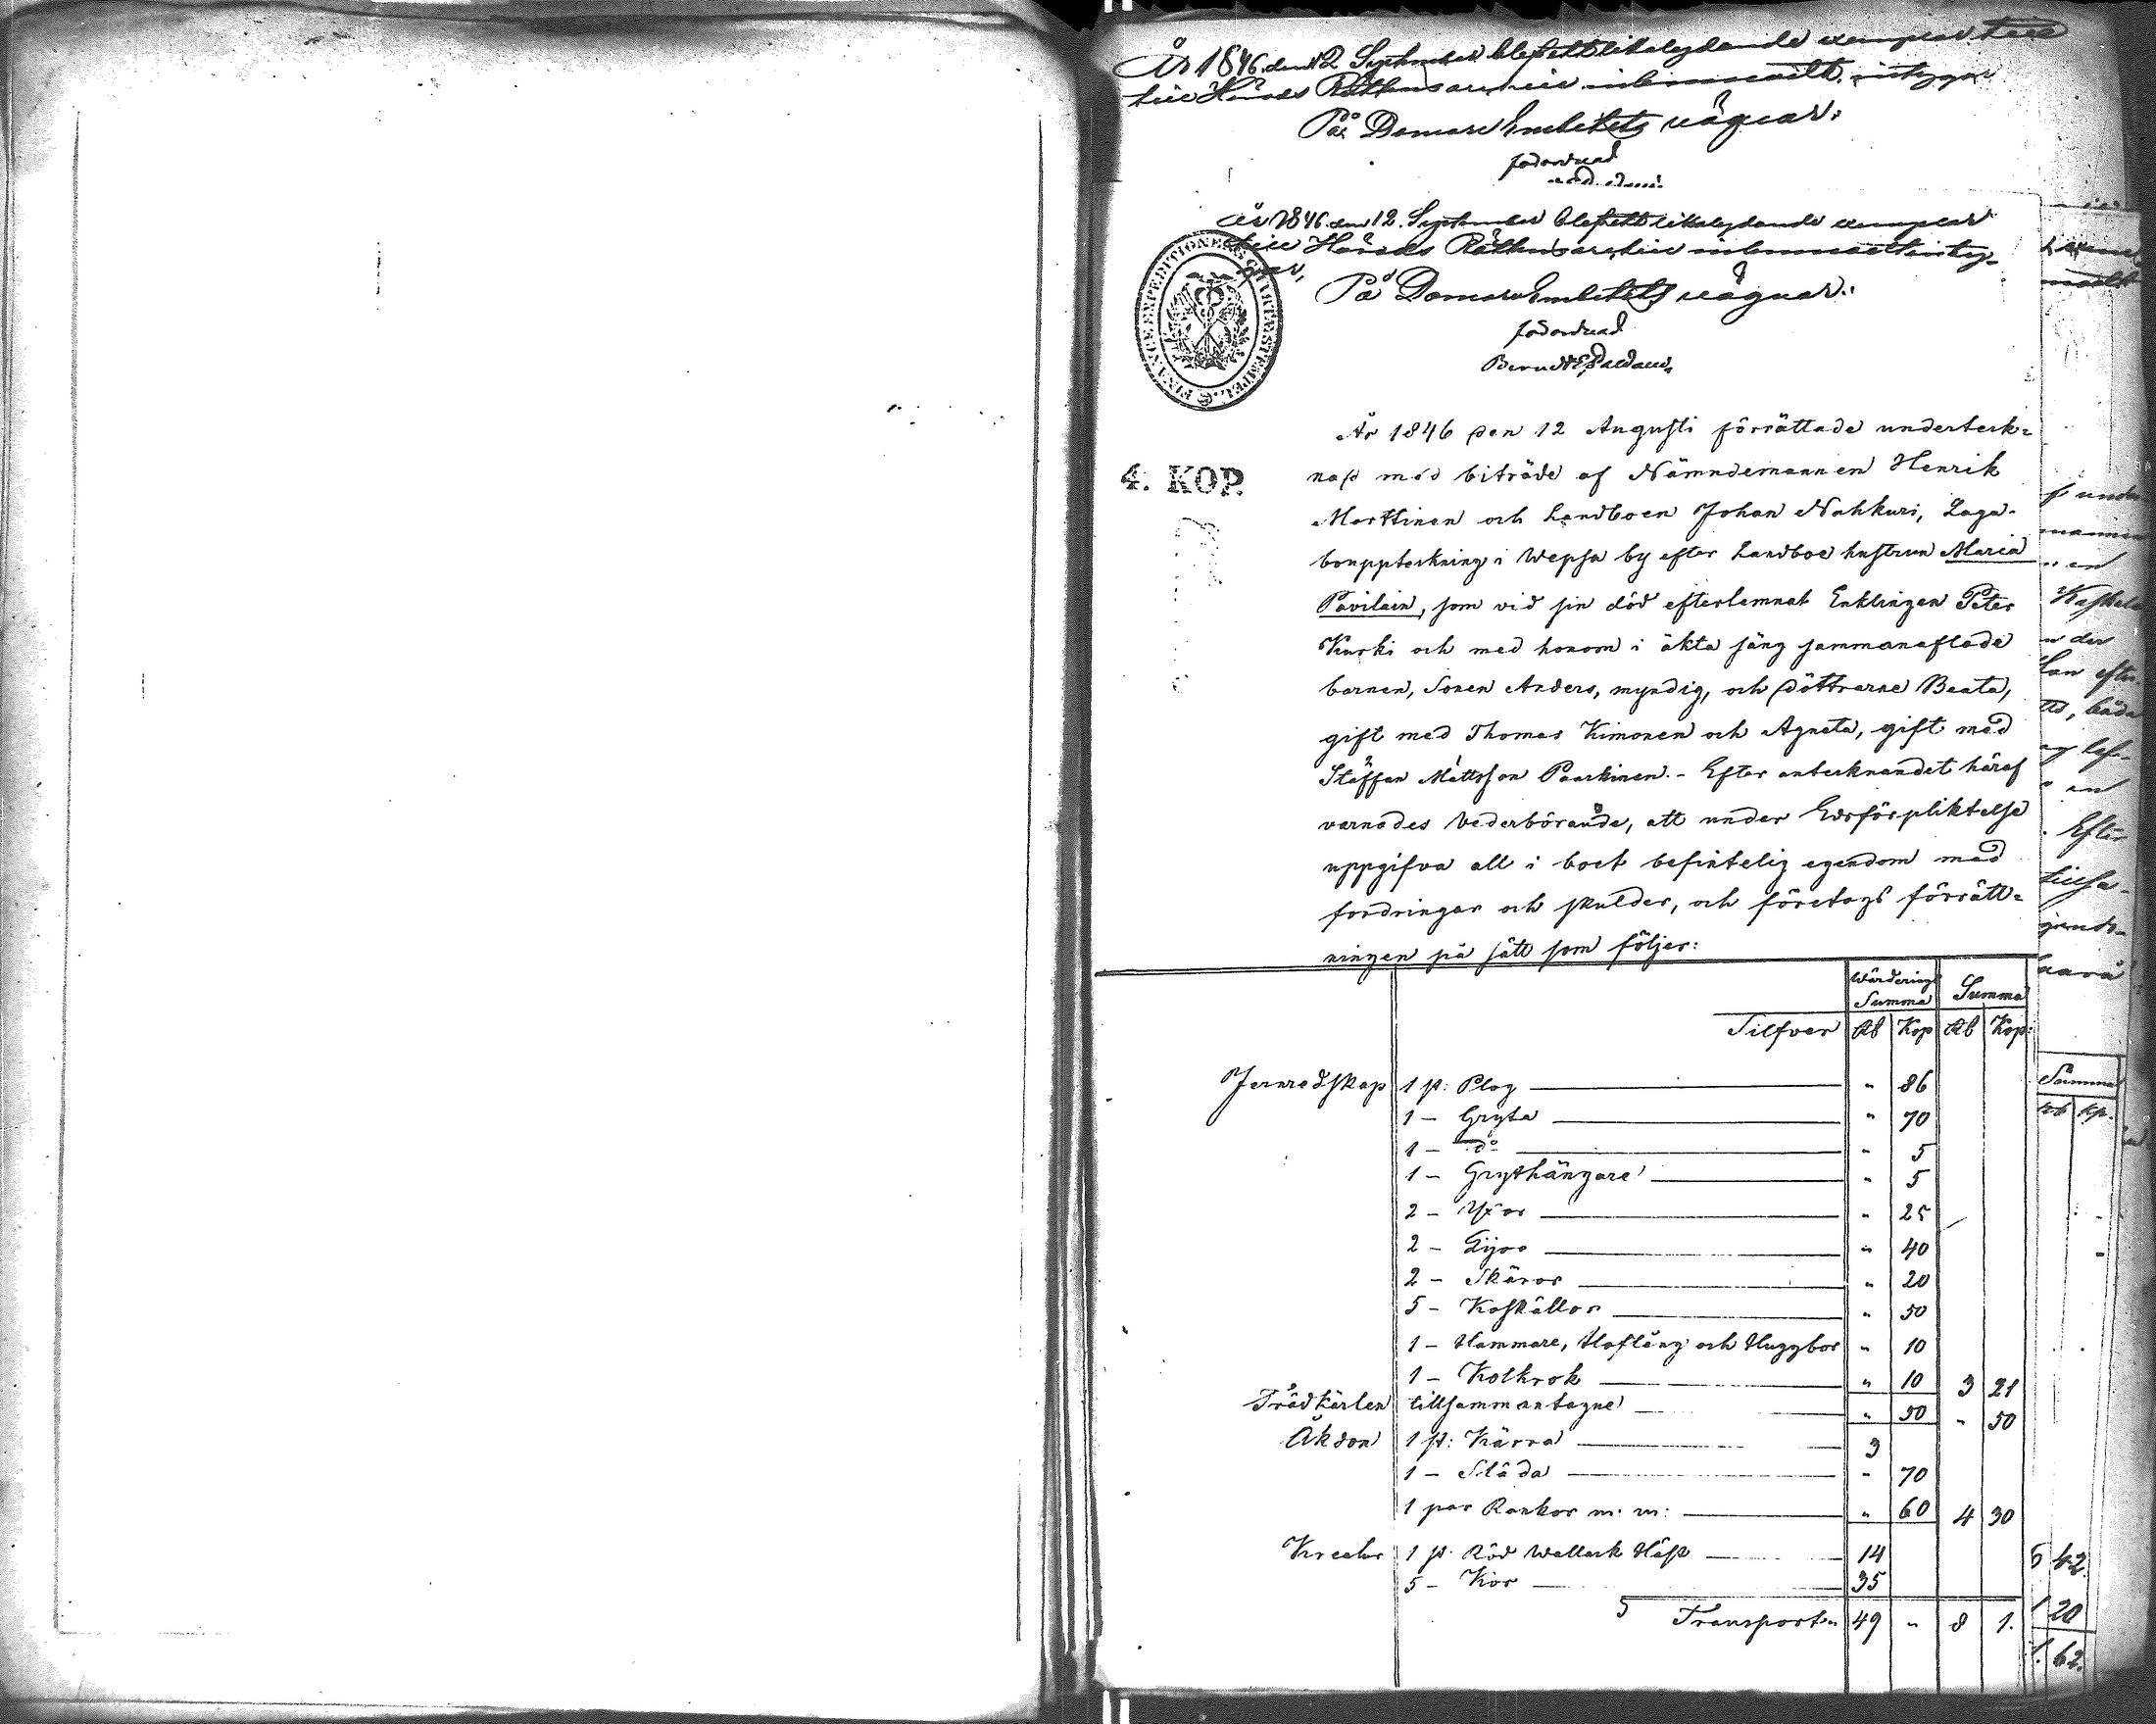 År 1846 den 12 September blef ett likalydande exemplar
till Härads Rättens archiv inlemnadt, intygar
På DomareEmbetets vägnar:
förordnad
År 1846 den 12 September blef ett likalydande exemplar
till Härads Rättens archiv inlemnadt inty-
gar,
På DomareEmbetets vägnar:
förordnad
FINANCE EXPEDITIONENS CHARTÆ STEMPEL.
4. KOP.
År 1846 den 12 Augusti förrättade underteck=
nad med biträde af Nämndemannen Henrik
Marttinen och Landboen Johan Nahkuri, Laga
bouppteckning i Wepsa by efter Landboe hustrun Maria
Pavilain, som vid sin död efterlemnat Enklingen Peter
Kurki och med honom i äkta säng sammanaflade
barnen, Sonen Anders, myndig, och döttrarne Beata,
gift med Thomas Kimonen och Agneta, gift med
Staffan Mattsson Paarkinen. - Efter antecknandet häraf
varnades Vederbörande, att under Edsförpliktelse
uppgifva all i boet befintelig egendom med
fordringar och skulder, och företogs förrätt=
ningen på sätt som följer:
Wärderings Summa Summa
Silfver Rb Kop Rb Kop:
Jernredskap 1 st: Plog " 86
1 - Gryta " 70
1 - do " 5
1 - Grythängare " 5
2 - Yxor " 25
2 - Lijor " 40
2 - Skäror " 20
5 - Koskällor " 50
1 - Hammare, Hoftång och Huggbor " 10
1 - Kolkrok " 10 3 21
Trädkärlen tillsammantagne " 50 " 50
Åkdon 1 st: Kärra 3
1 - Släda " 70
1 par Rankor m: m: " 60 4 30
Kreatur 1 st. Röd Wallack Häst 14
5 - Kor 35
Transport 49 " 8 1.
Summa
Rb kp.
5 42
1 20
62.